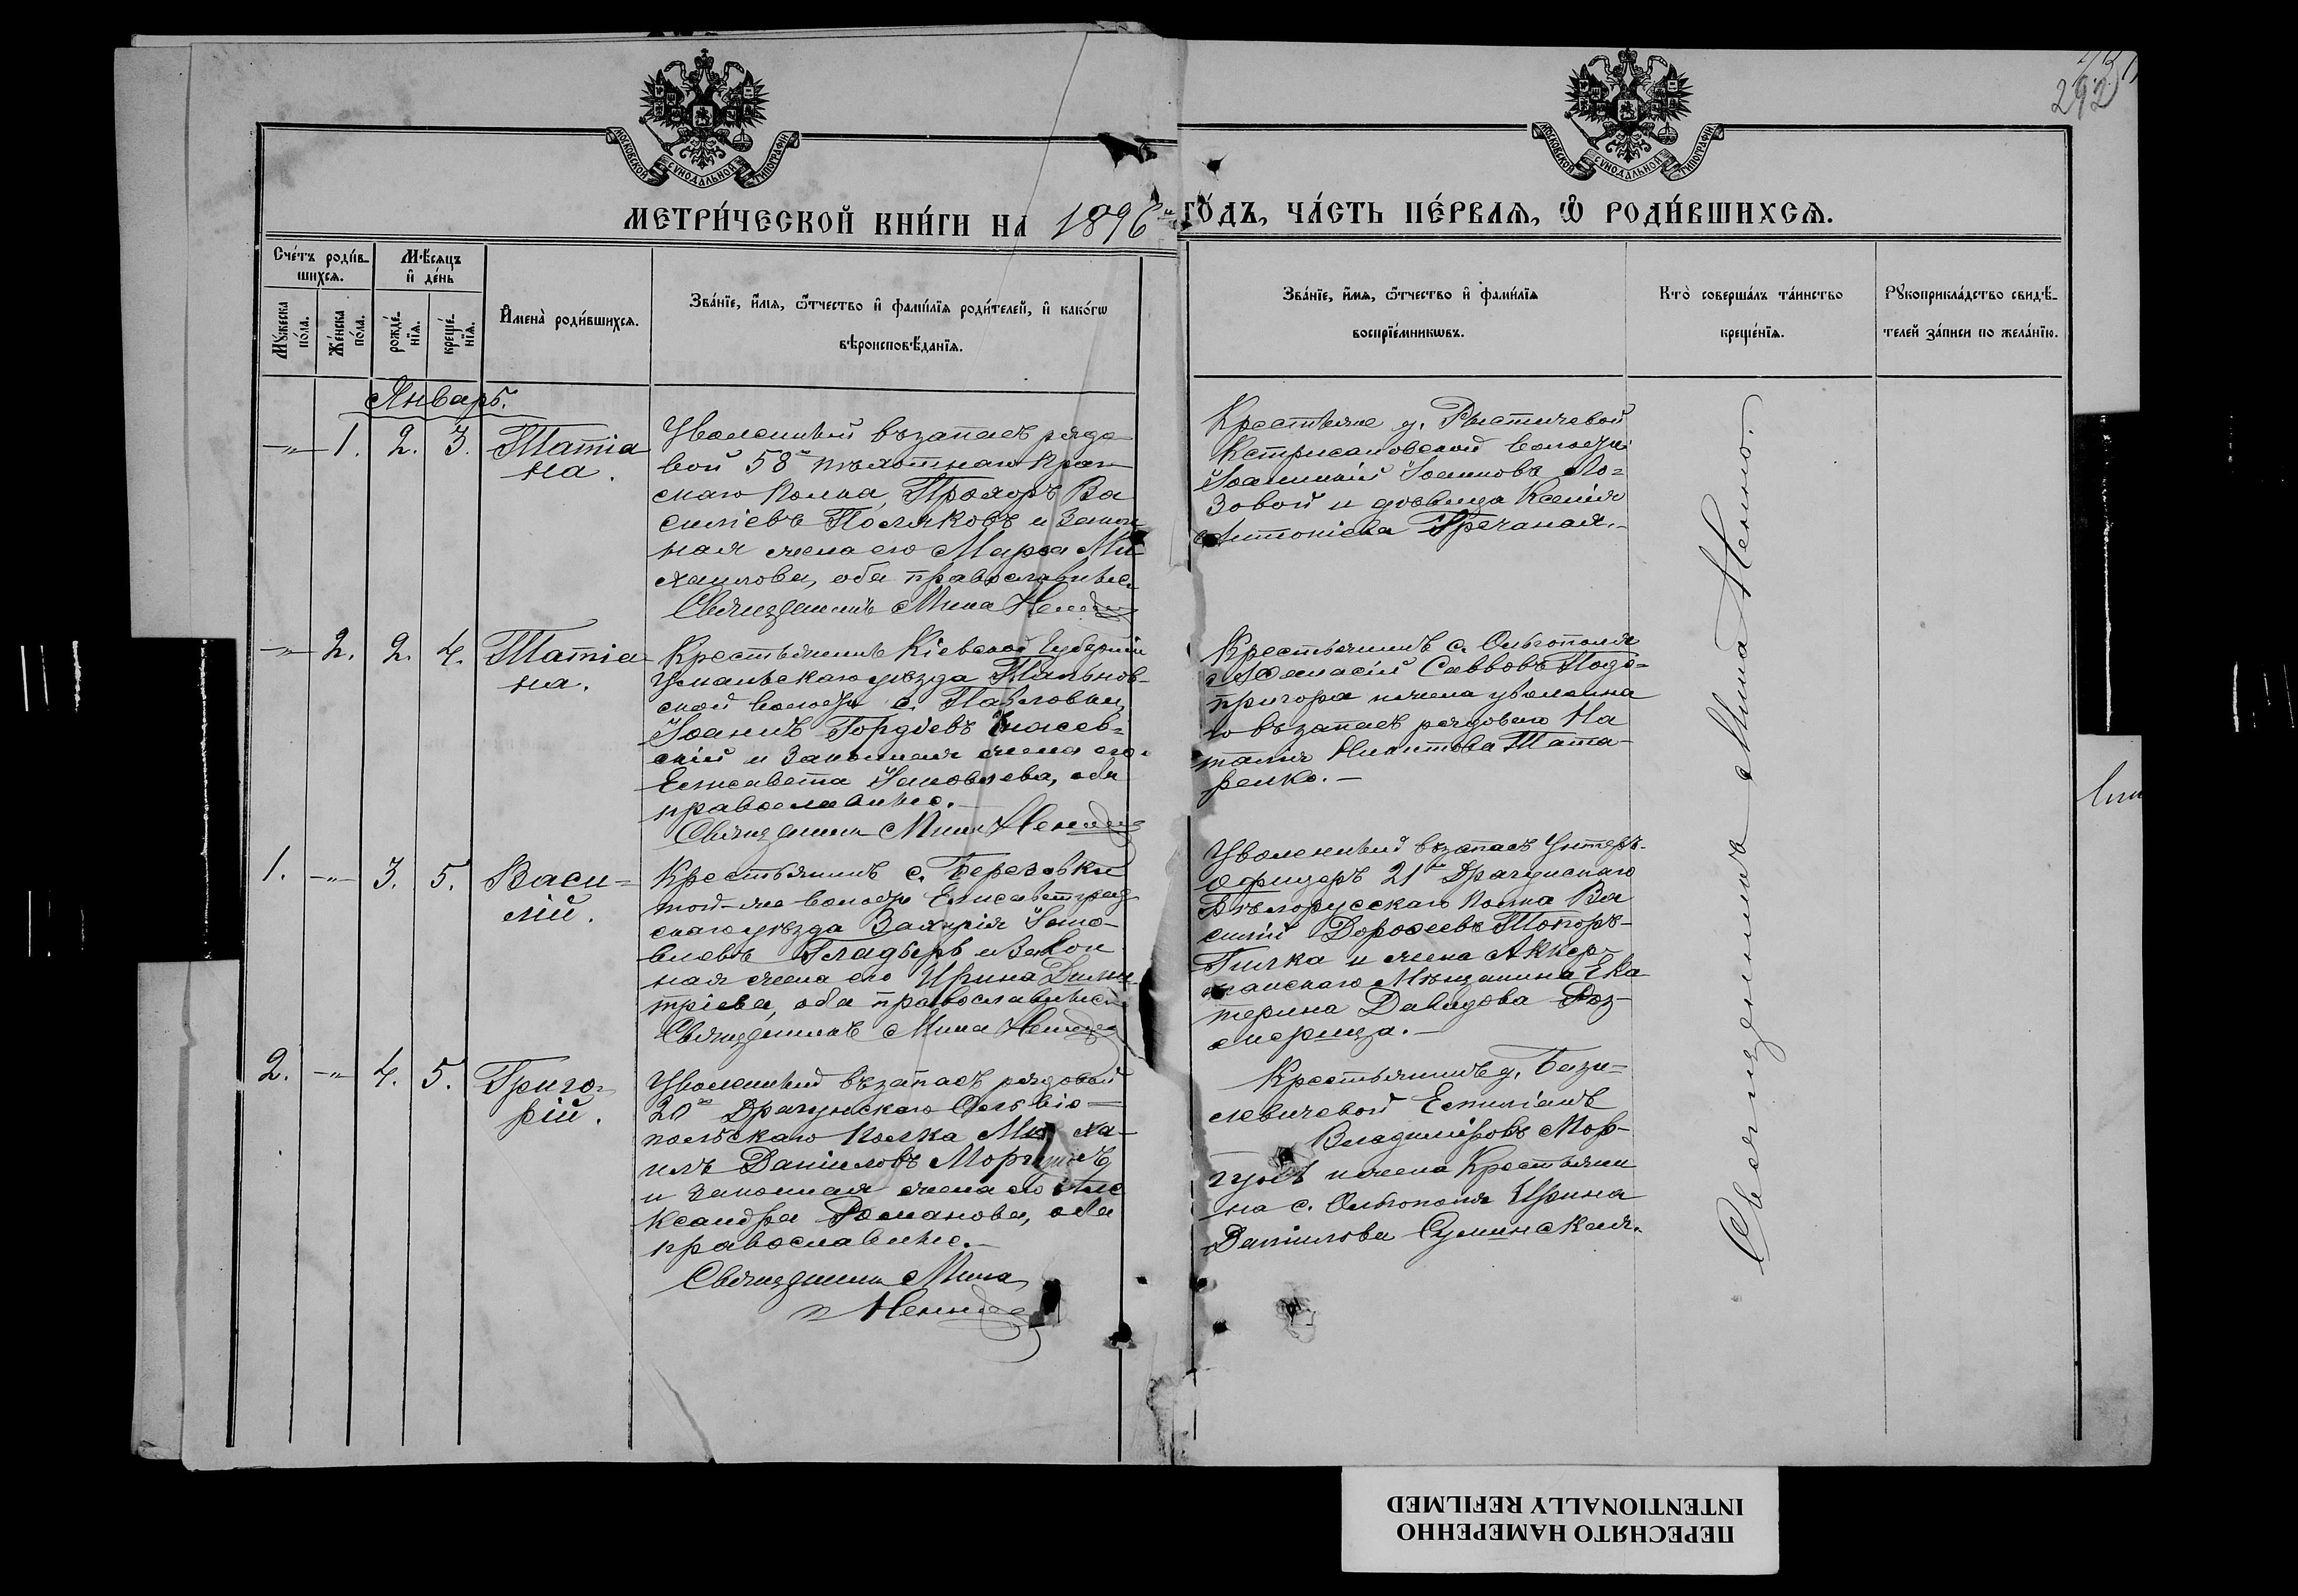 292
МОСКОВСКОЙ СѴНОДАЛЬНОЙ ТИПОГРАФИИ
МОСКОВСКОЙ СѴНОДАЛЬНОЙ ТИПОГРАФИИ
МЕТРИ́ЧЕСКОЙ КНИ́ГИ НА 1896й ГО́ДЪ, ЧА́СТЬ ПЕ́РВАЯ, Ѡ РОДИ́ВШИХСЯ.
Сче́тъ роди́в-
шихся.
Мꙋ́жеска по́ла.
Же́нска по́ла.
Мѣ́сяцъ
и҆ де́нь
рожде́-
нїя.
креще́-
нїя.
И҆мена̀ роди́вшихся.
Зва́нїе, и҆́мя, ѻ҆́тчество и҆ фами́лїя роди́телей, и҆ како́гѡ
вѣроисповѣ́данїя.
Зва́нїе, и҆́мя, ѻ҆́тчество и҆ фами́лїя
воспрїе́мникѡвъ.
Кто̀ соверша́лъ та́инство
креще́нїя.
Рꙋкоприкла́дство свидѣ́-
телей за́писи по жела́нїю.
Январь.
-„- 1. 2. 3. Татіа
на.
Уволенный въ запасъ рядо
вой 58го пѣхотнаго Праг
скаго полка, Прохоръ Ва
силіевъ Поляковъ и закон
ная жена его Марѳа Ми
хаилова, оба православные.
Священникъ Мина
Крестьяне д.
волости
Іоанновъ Ло=
зовой и дѣвица Ксенія
Антоніева Гречаная.-
-„- 2. 2. 4. Татіа
на.
Крестьянинъ Кіевской губерніи
Уманьскаго уѣзда Тальнов-
ской волости с. Павловки
Іоаннъ Гордіевъ
скій и законная жена его
Елисавета Іаковлева, оба
православные.-
Священникъ Мина
Крестьянинъ с. Ольгополя
Аѳанасій Савовъ Подо=
пригора и жена уволенна
го въ запасъ рядового На
талія Никитова Тата-
ренко.-
1. -„- 3. 5. Васи=
лій.
Крестьянинъ с. Березовки
той-же волости Елисаветград
скаго уѣзда Захарія Іако-
влевъ Гладырь и закон
ная жена его Ирина Дими
тріева, оба православные.
Священникъ Мина
Уволенный въ запасъ унтеръ-
офицеръ 21го Драгунскаго
Бѣлорусскаго полка Ва
силій Дороѳеевъ Топоръ-
Гилка и жена Аккер-
манскаго мѣщанина Ека
терина Давидова Роз-
мерица.-
2. -„- 4. 5. Григо=
рій.
Уволенный въ запасъ рядовой
20го Драгунскаго Ольвіо-
польскаго полка Миха-
илъ Даніиловъ Моргунъ
и законная жена его Але
ксандра Романова, оба
православные.-
Священникъ Мина
Крестьянинъ д. Бази=
левичевой Емиліанъ
Владиміровъ Мор-
гунъ и жена крестьяни
на с. Ольгополя Ирина
Даніилова Сулинская.
Священникъ Мина
ПЕРЕСНЯТО НАМЕРЕННО
INTENTIONALLY REFILMED